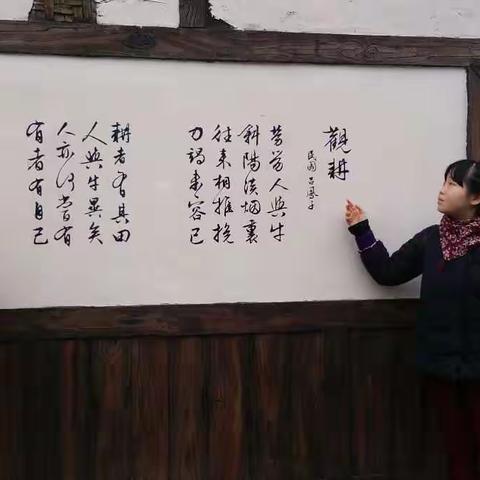 觀耕
民國 吕鳳子
劳劳人與牛
斜陽淡烟裏
往來相推挽
力竭未容已
耕者有其田
人與牛異矣
人亦何嘗有
有者有自己